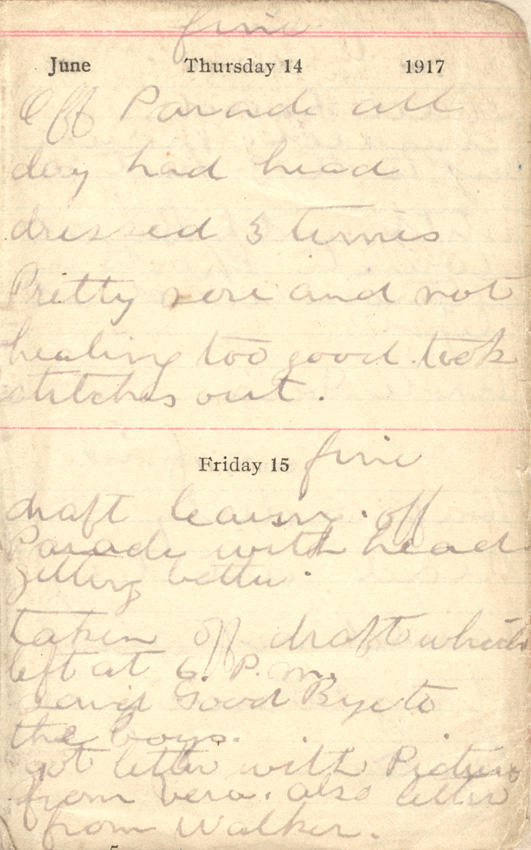 fine
June Thursday 14 1917
Off Parade all
day had head
dressed 3 times
Pretty sore and not
healing too good. took
stitches out.
Friday 15 fine
draft leaving. off
Parade with head
getting better.
taken off draft which
left at 6. P.m.
Good Bye to
the boys.
got letter with Picture
from vera. also letter
from Walker.